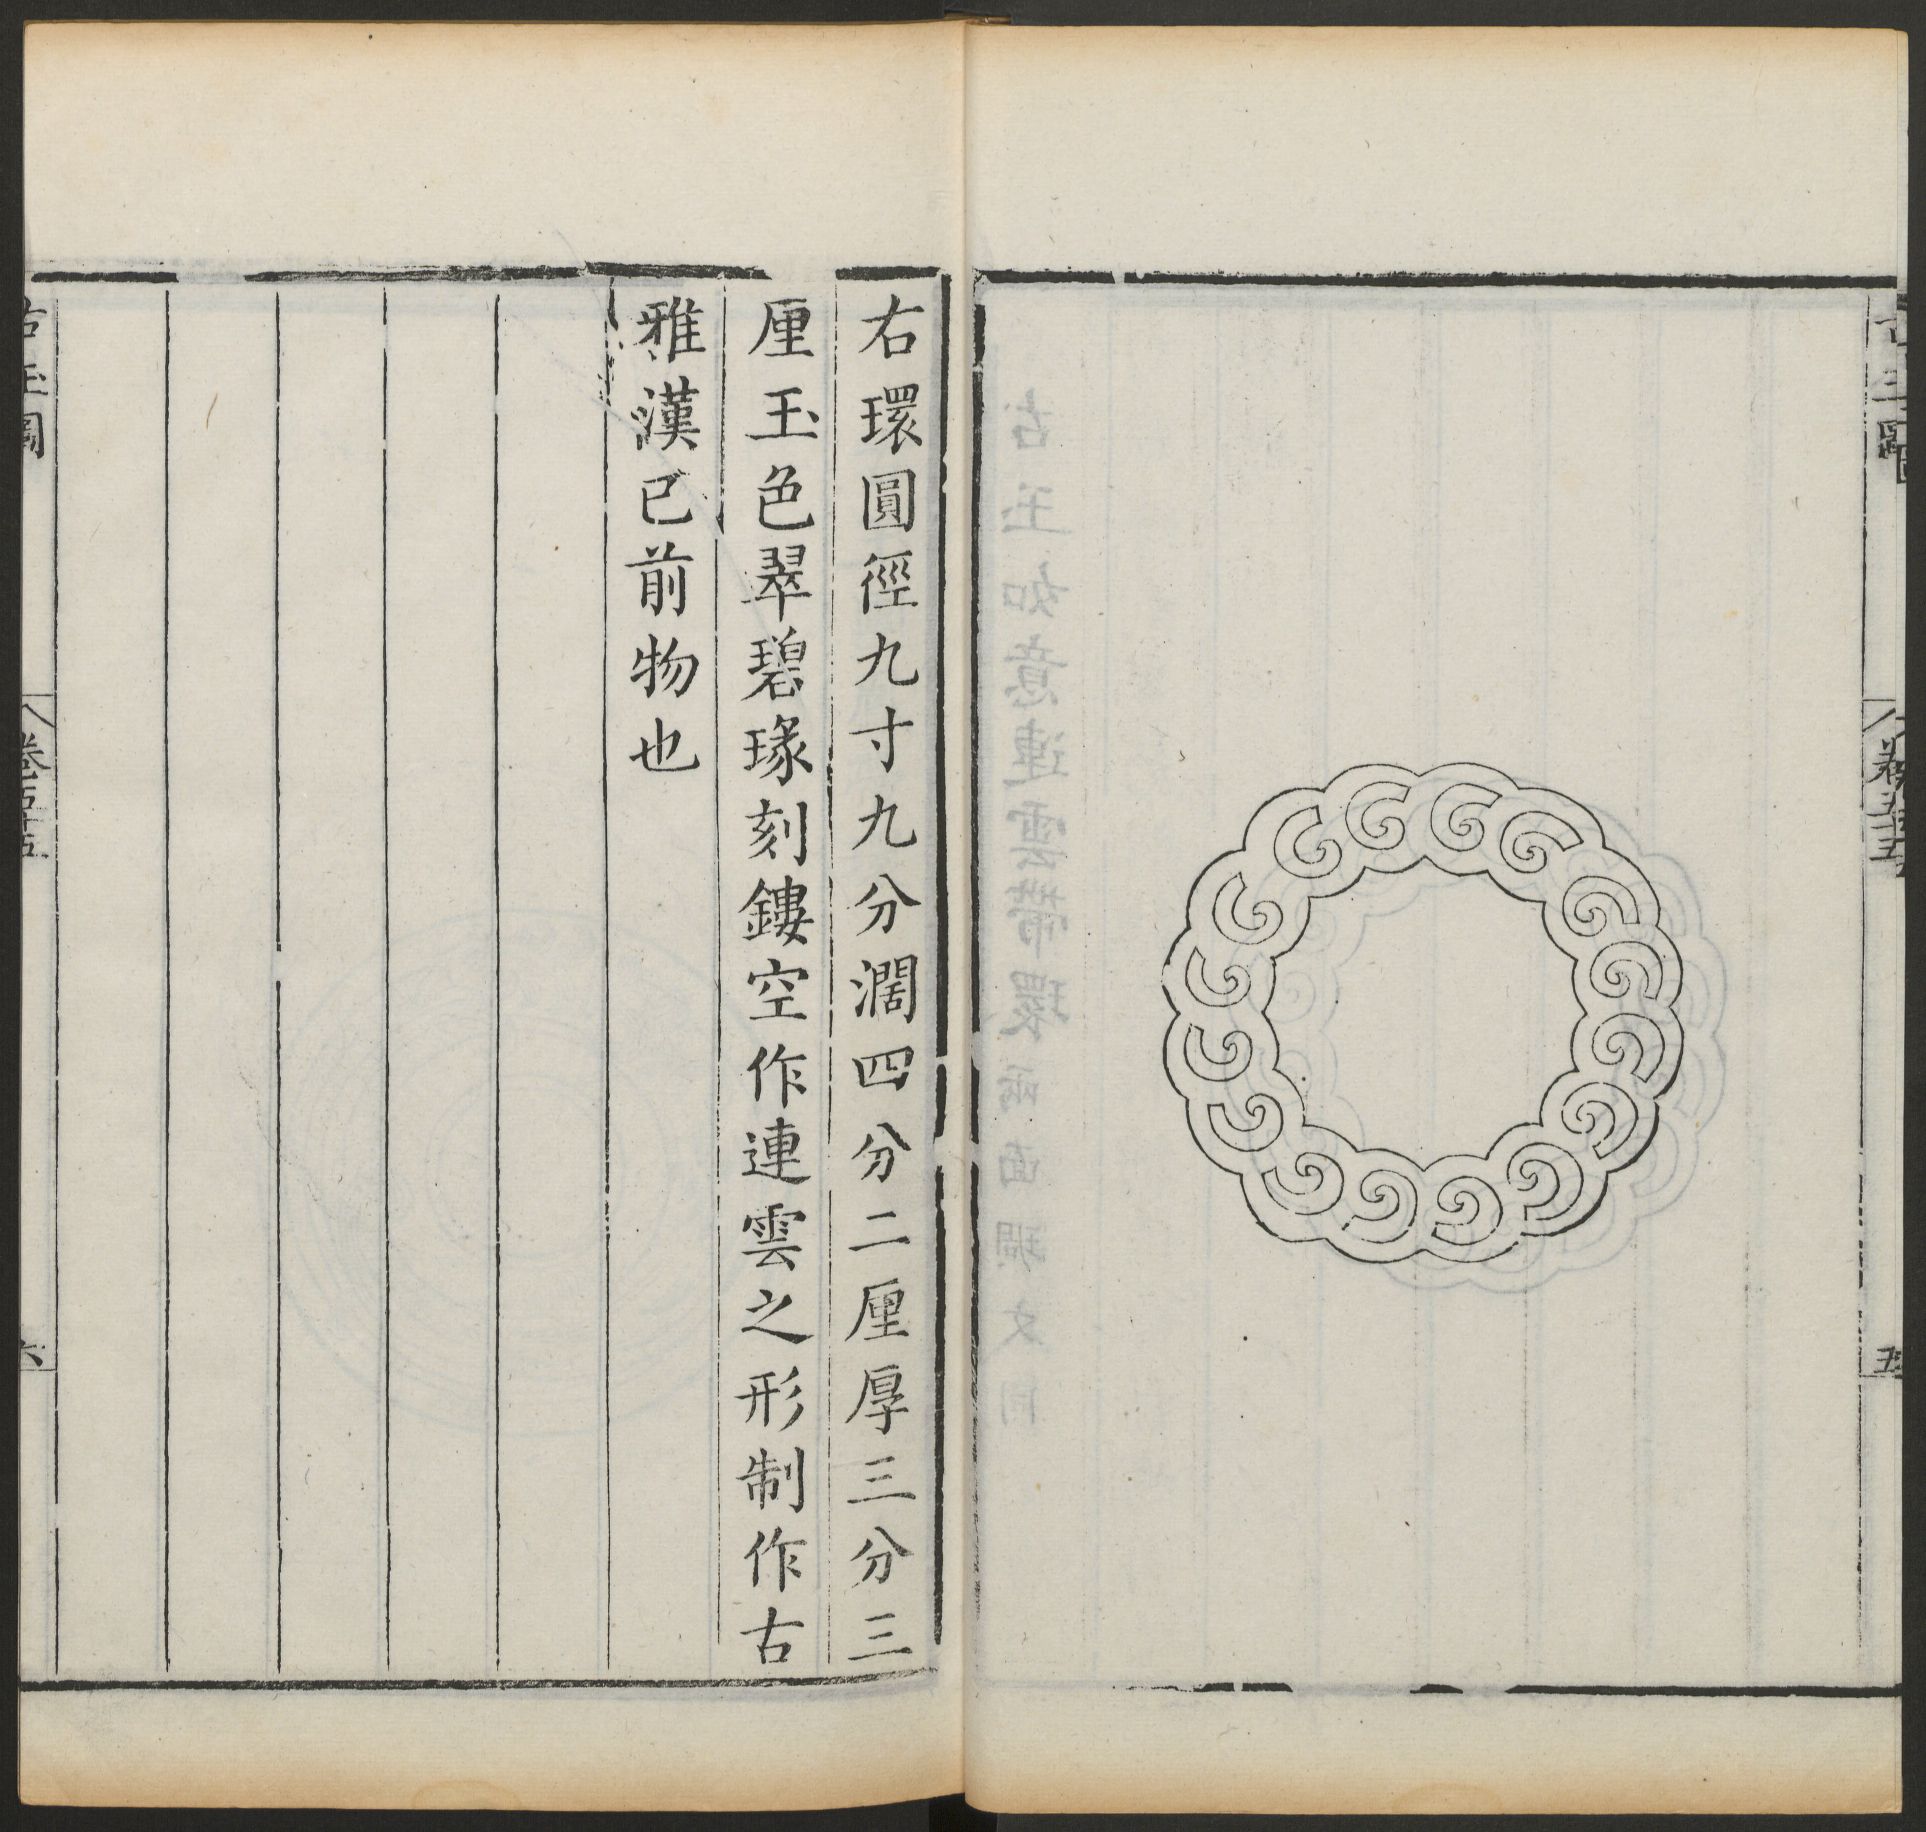 右環圓徑九寸九分濶四分二厘厚三分三
厘玉色翠碧瑑刻鏤空作連雲之形制作古
雅漢已前物也